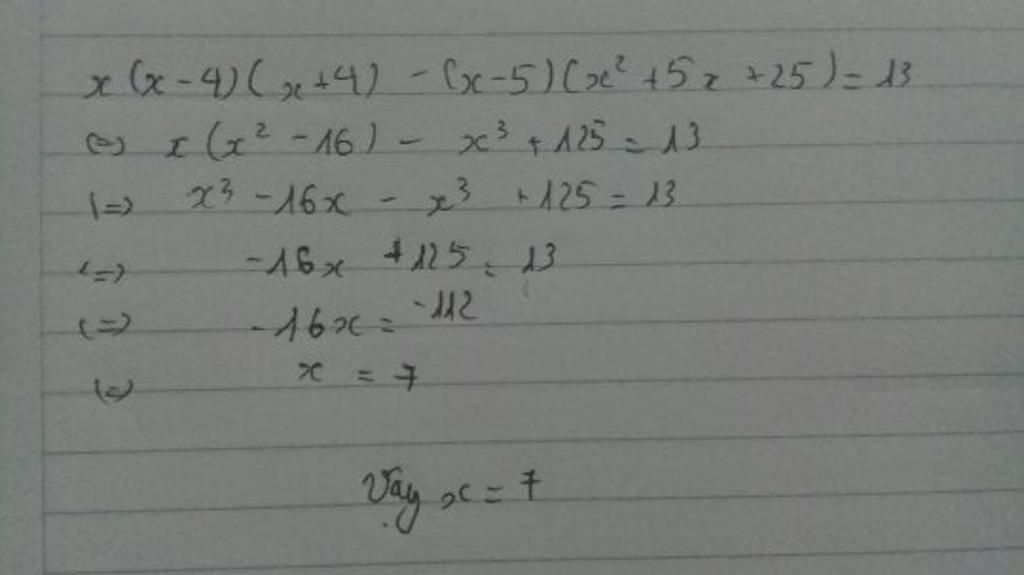 x(x-4)(x+4) - (x-5)(x² +5x +25) = 13
⇔ x(x² -16) - x³ + 125 = 13
⇔ x³ -16x - x³ +125 = 13
⇔ -16x +125 = 13
⇔ -16x = -112
⇔ x = 7
Vậy x = 7